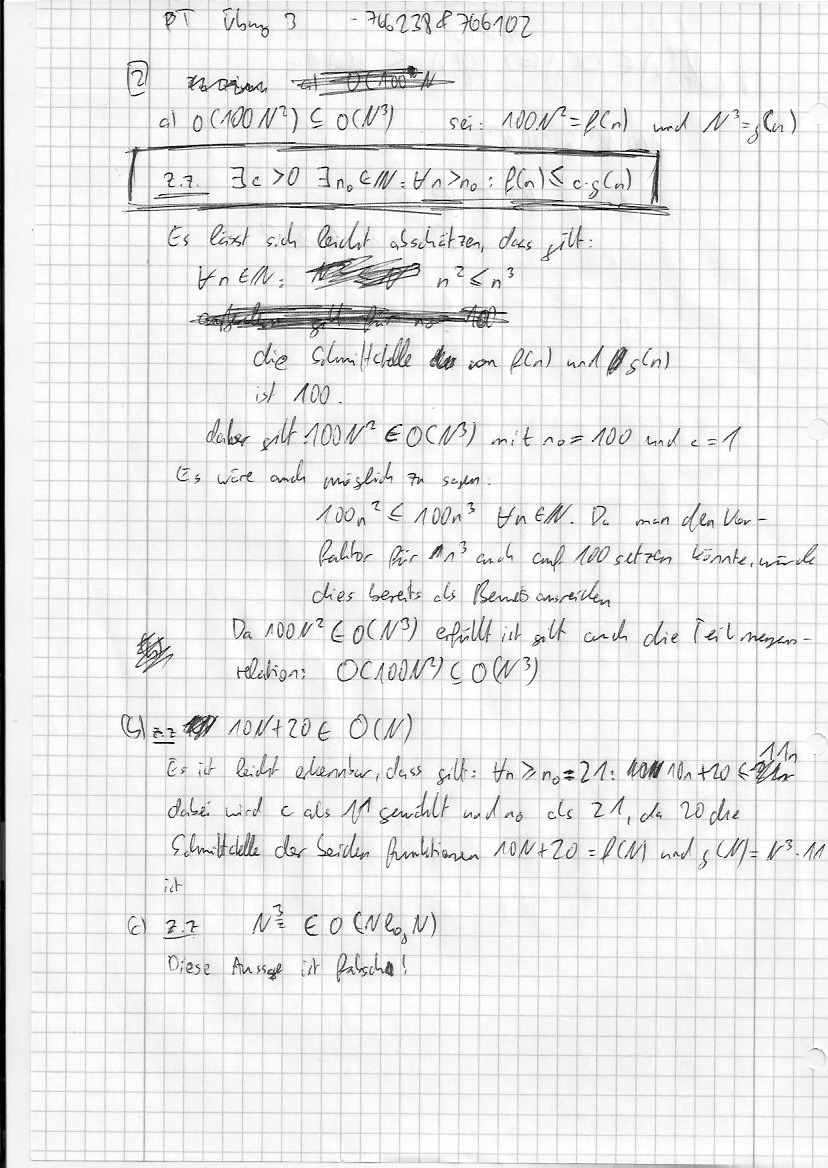 BT Übung 3 - 766238 & 766102
2
a) O(100N²) ⊆ O(N³) sei: 100N² = f(n) und N³ = g(n)
z.z. ∃c > 0 ∃n₀ ∈ ℕ: ∀n > n₀ : f(n) ≤ c·g(n)
Es lässt sich leicht abschätzen, dass gilt:
∀n ∈ ℕ: n² ≤ n³
die Schnittstelle von f(n) und g(n)
ist 100.
daher gilt 100N² ∈ O(N³) mit n₀ = 100 und c = 1
Es wäre auch möglich zu sagen:
100n² ≤ 100n³ ∀n ∈ ℕ. Da man den Vor-
faktor für n³ auch auf 100 setzen könnte, würde
dies bereits als Beweis ausreichen
Da 100N² ∈ O(N³) erfüllt ist gilt auch die Teilmengen-
relation: O(100N²) ⊆ O(N³)
b) z.z 10N+20 ∈ O(N)
Es ist leicht erkennbar, dass gilt: ∀n ≥ n₀ = 21: 10n+20 ≤ 11n
dabei wird c als 11 gewählt und n₀ als 21, da 20 die
Schnittstelle der beiden Funktionen 10N+20 = f(N) und g(N) = N³·11
ist
c) z.z N³ ∈ O(N log N)
Diese Aussage ist falsch!